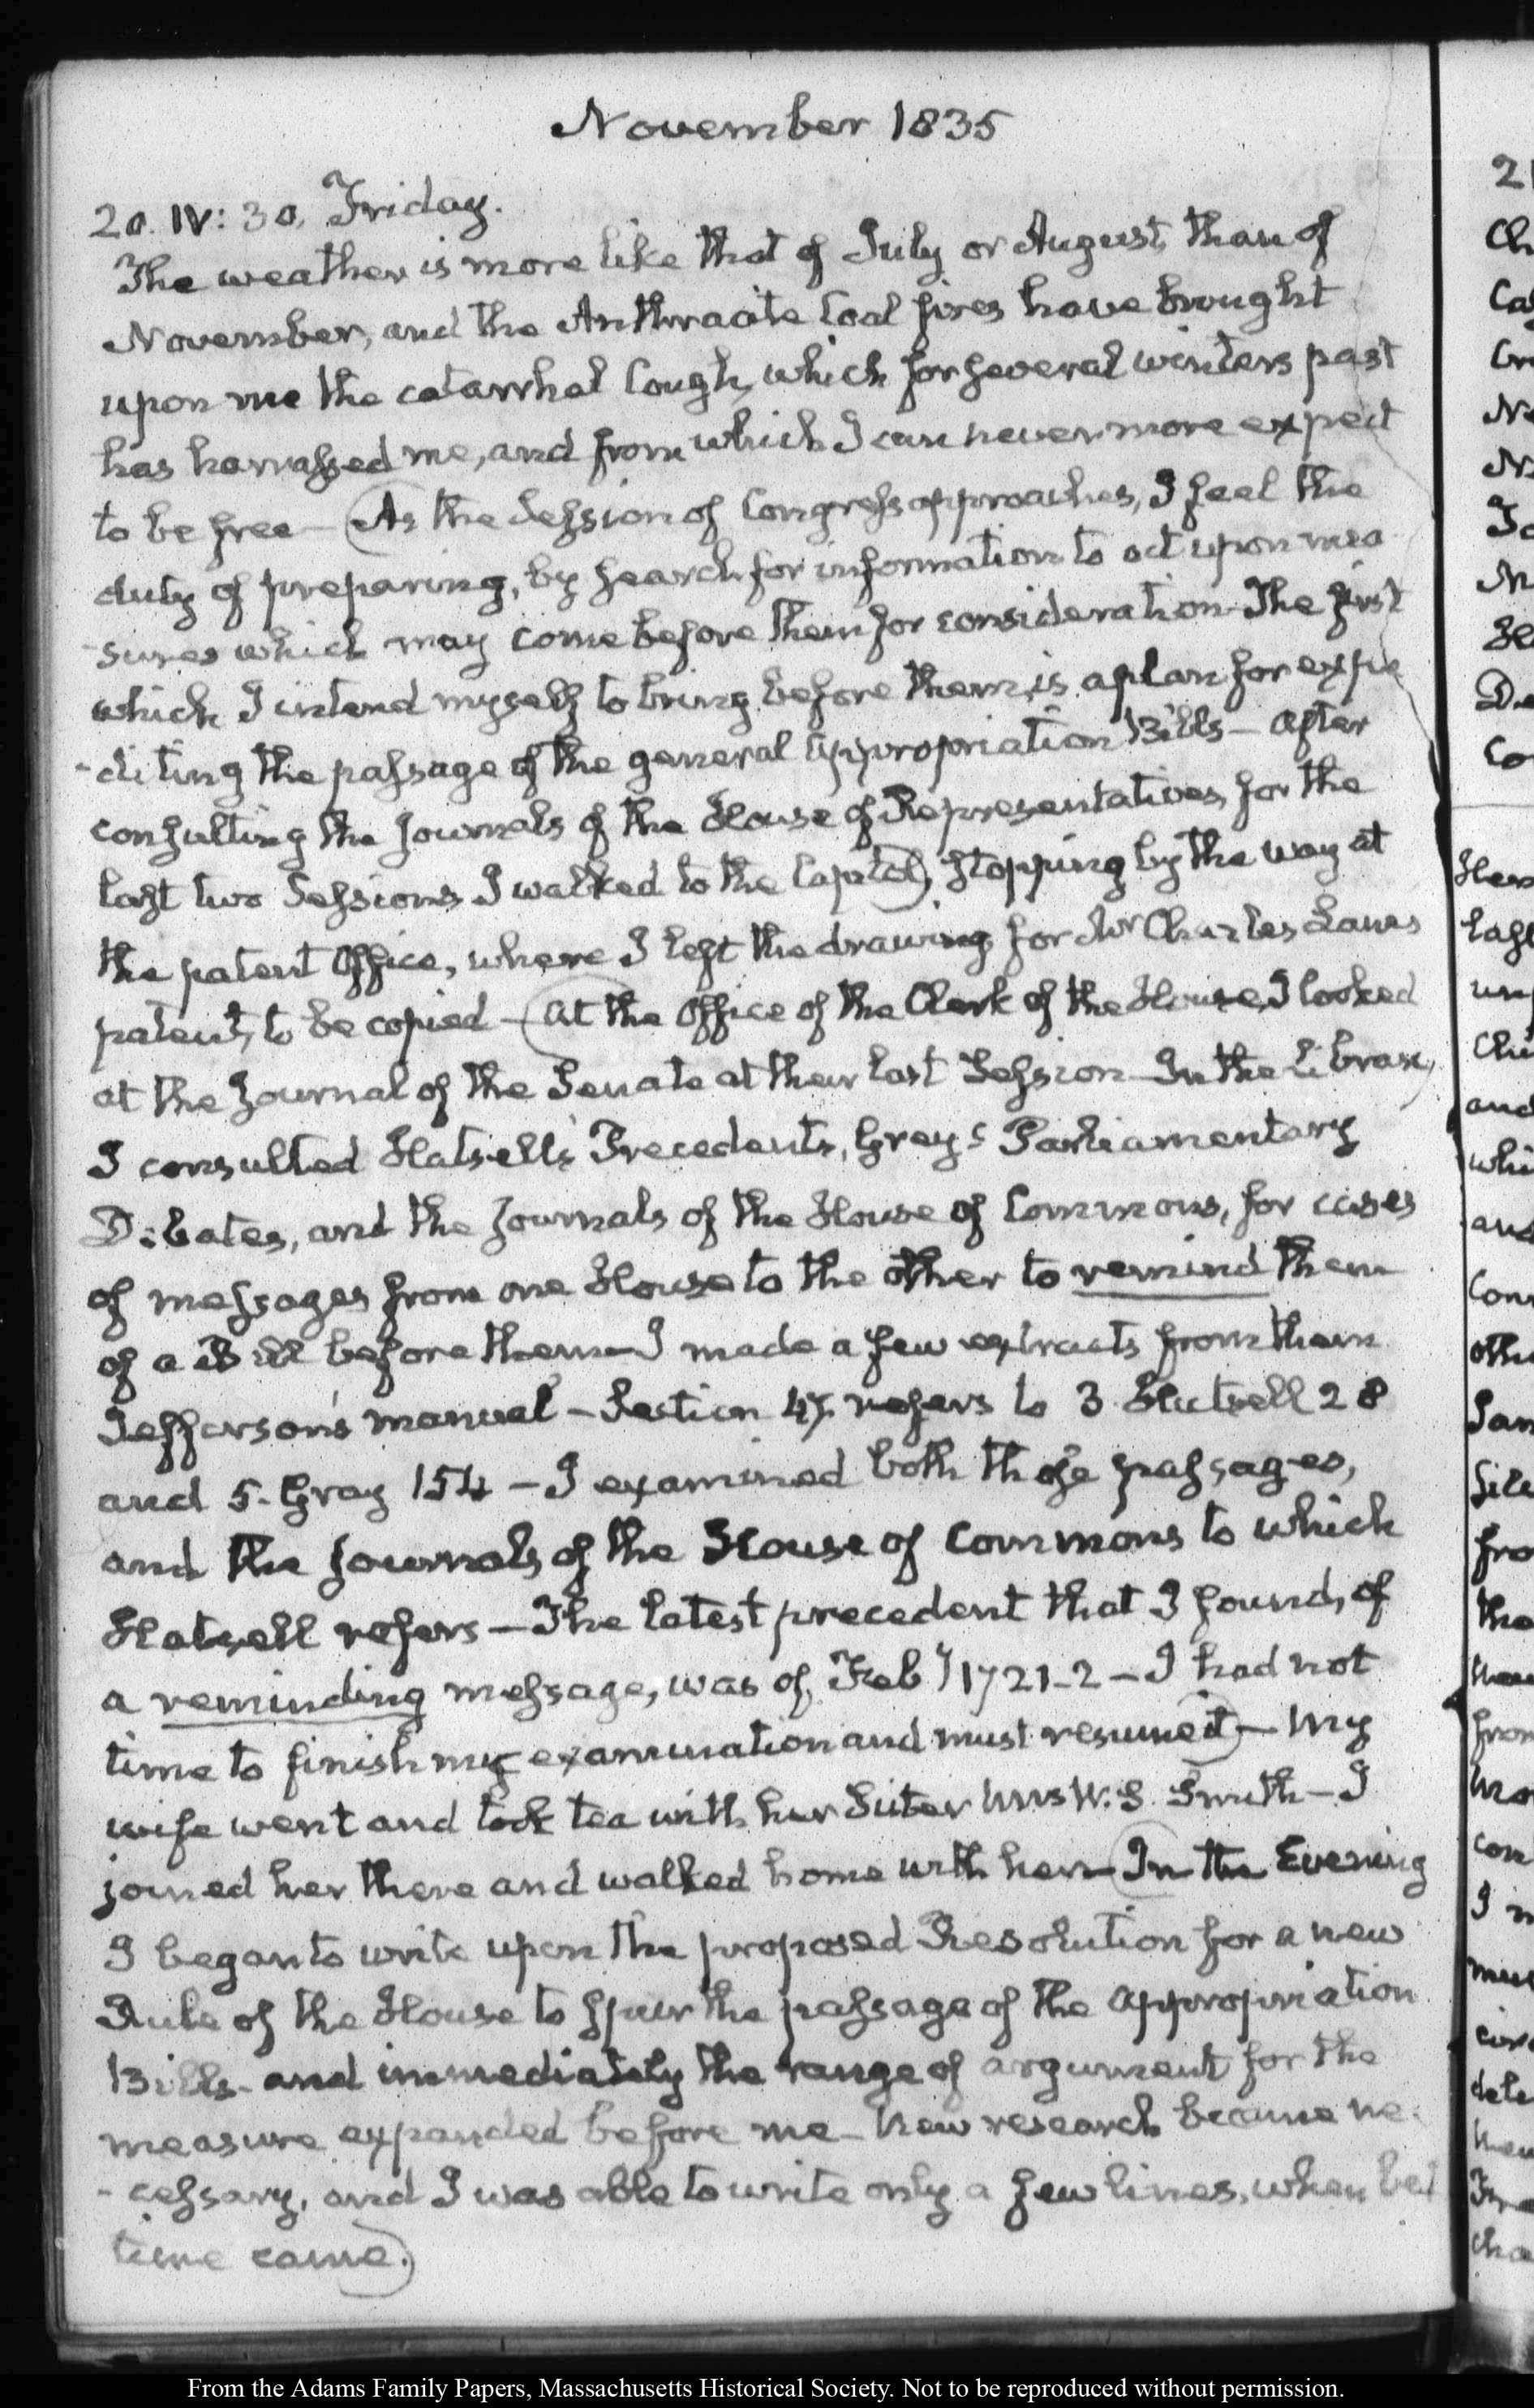 November 1835
20. IV: 30. Friday.
The weather is more like that of July or August, than of
November, and the Anthracite Coal fires have brought
upon me the catarrhal Cough, which for several winters past
has harrassed me, and from which I can never more expect
to be free — (As the Session of Congress approaches, I feel the
duty of preparing, by search for information to act upon mea
-sures which may come before them for consideration — The first
which I intend myself to bring before them, is a plan for expe
-diting the passage of the general Appropriation Bills — After
consulting the Journals of the House of Representatives, for the
last two Sessions, I walked to the Capitol), stopping by the way at
the patent Office, where I left the drawing for Mr Charles Lanes
patent, to be copied — (At the Office of the Clerk of the House, I looked
at the Journal of the Senate at their last Session — In the Library
I consulted Hatsell's Precedents, Grey's Parliamentary
Debates, and the Journals of the House of Commons, for cases
of messages from one House to the other to remind them
of a Bill before them — I made a few extracts from them
Jefferson's manual — Section 47. refers to 3 Hatsell 28
and 5. Gray 154 — I examined both those passages,
and the Journals of the House of Commons to which
Hatsell refers — The latest precedent that I found, of
a reminding message, was of, Feby 1721-2 — I had not
time to finish my examination and must resume it) — My
wife went and took tea with her Sister Mrs W. S. Smith — I
joined her there and walked home with her — (In the Evening
I began to write upon the proposed Resolution for a new
Rule of the House to spur the passage of the Appropriation
Bills — and immediately the range of argument for the
measure expanded before me — New research became ne-
-cessary, and I was able to write only a few lines, when bed
time came.)
2
Ch
Ca
Cr
No
No
To
M
He
De
Co
last
un
Chi
and
whi
and
Con
othe
San
file
fro
tha
hav
from
Ma
con
I m
mus
circ
dele
hew
Fre
cha
From the Adams Family Papers, Massachusetts Historical Society. Not to be reproduced without permission.